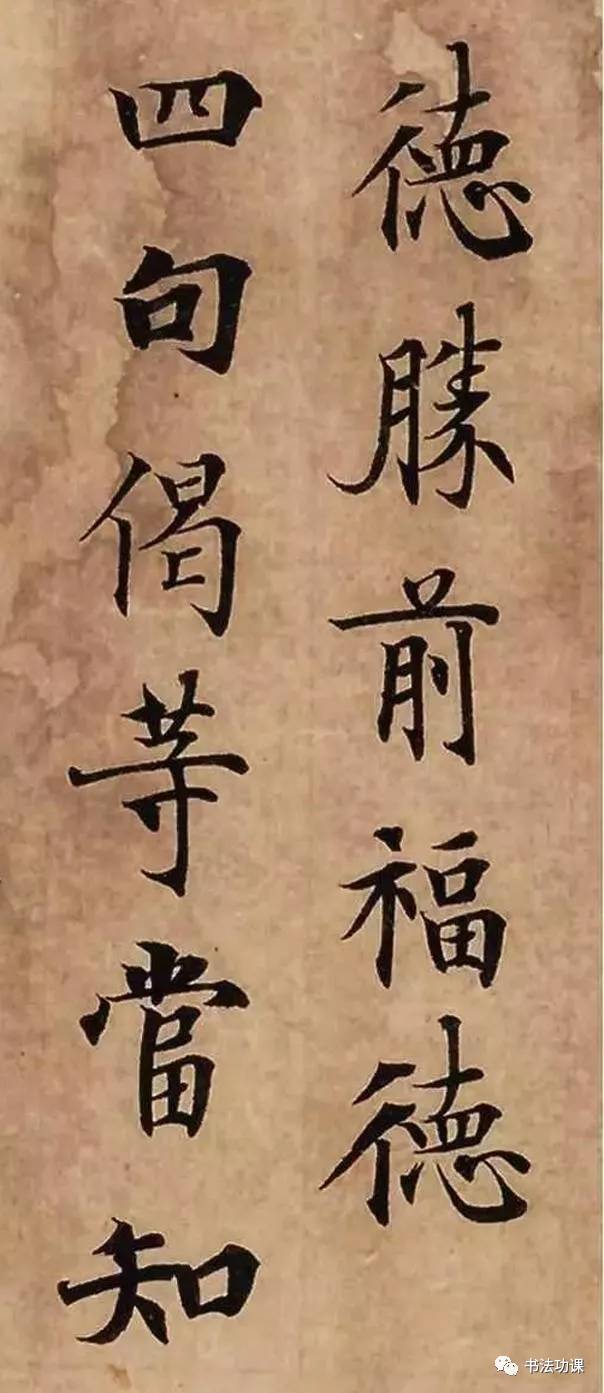 德勝前福德
四句偈等當知
书法功课